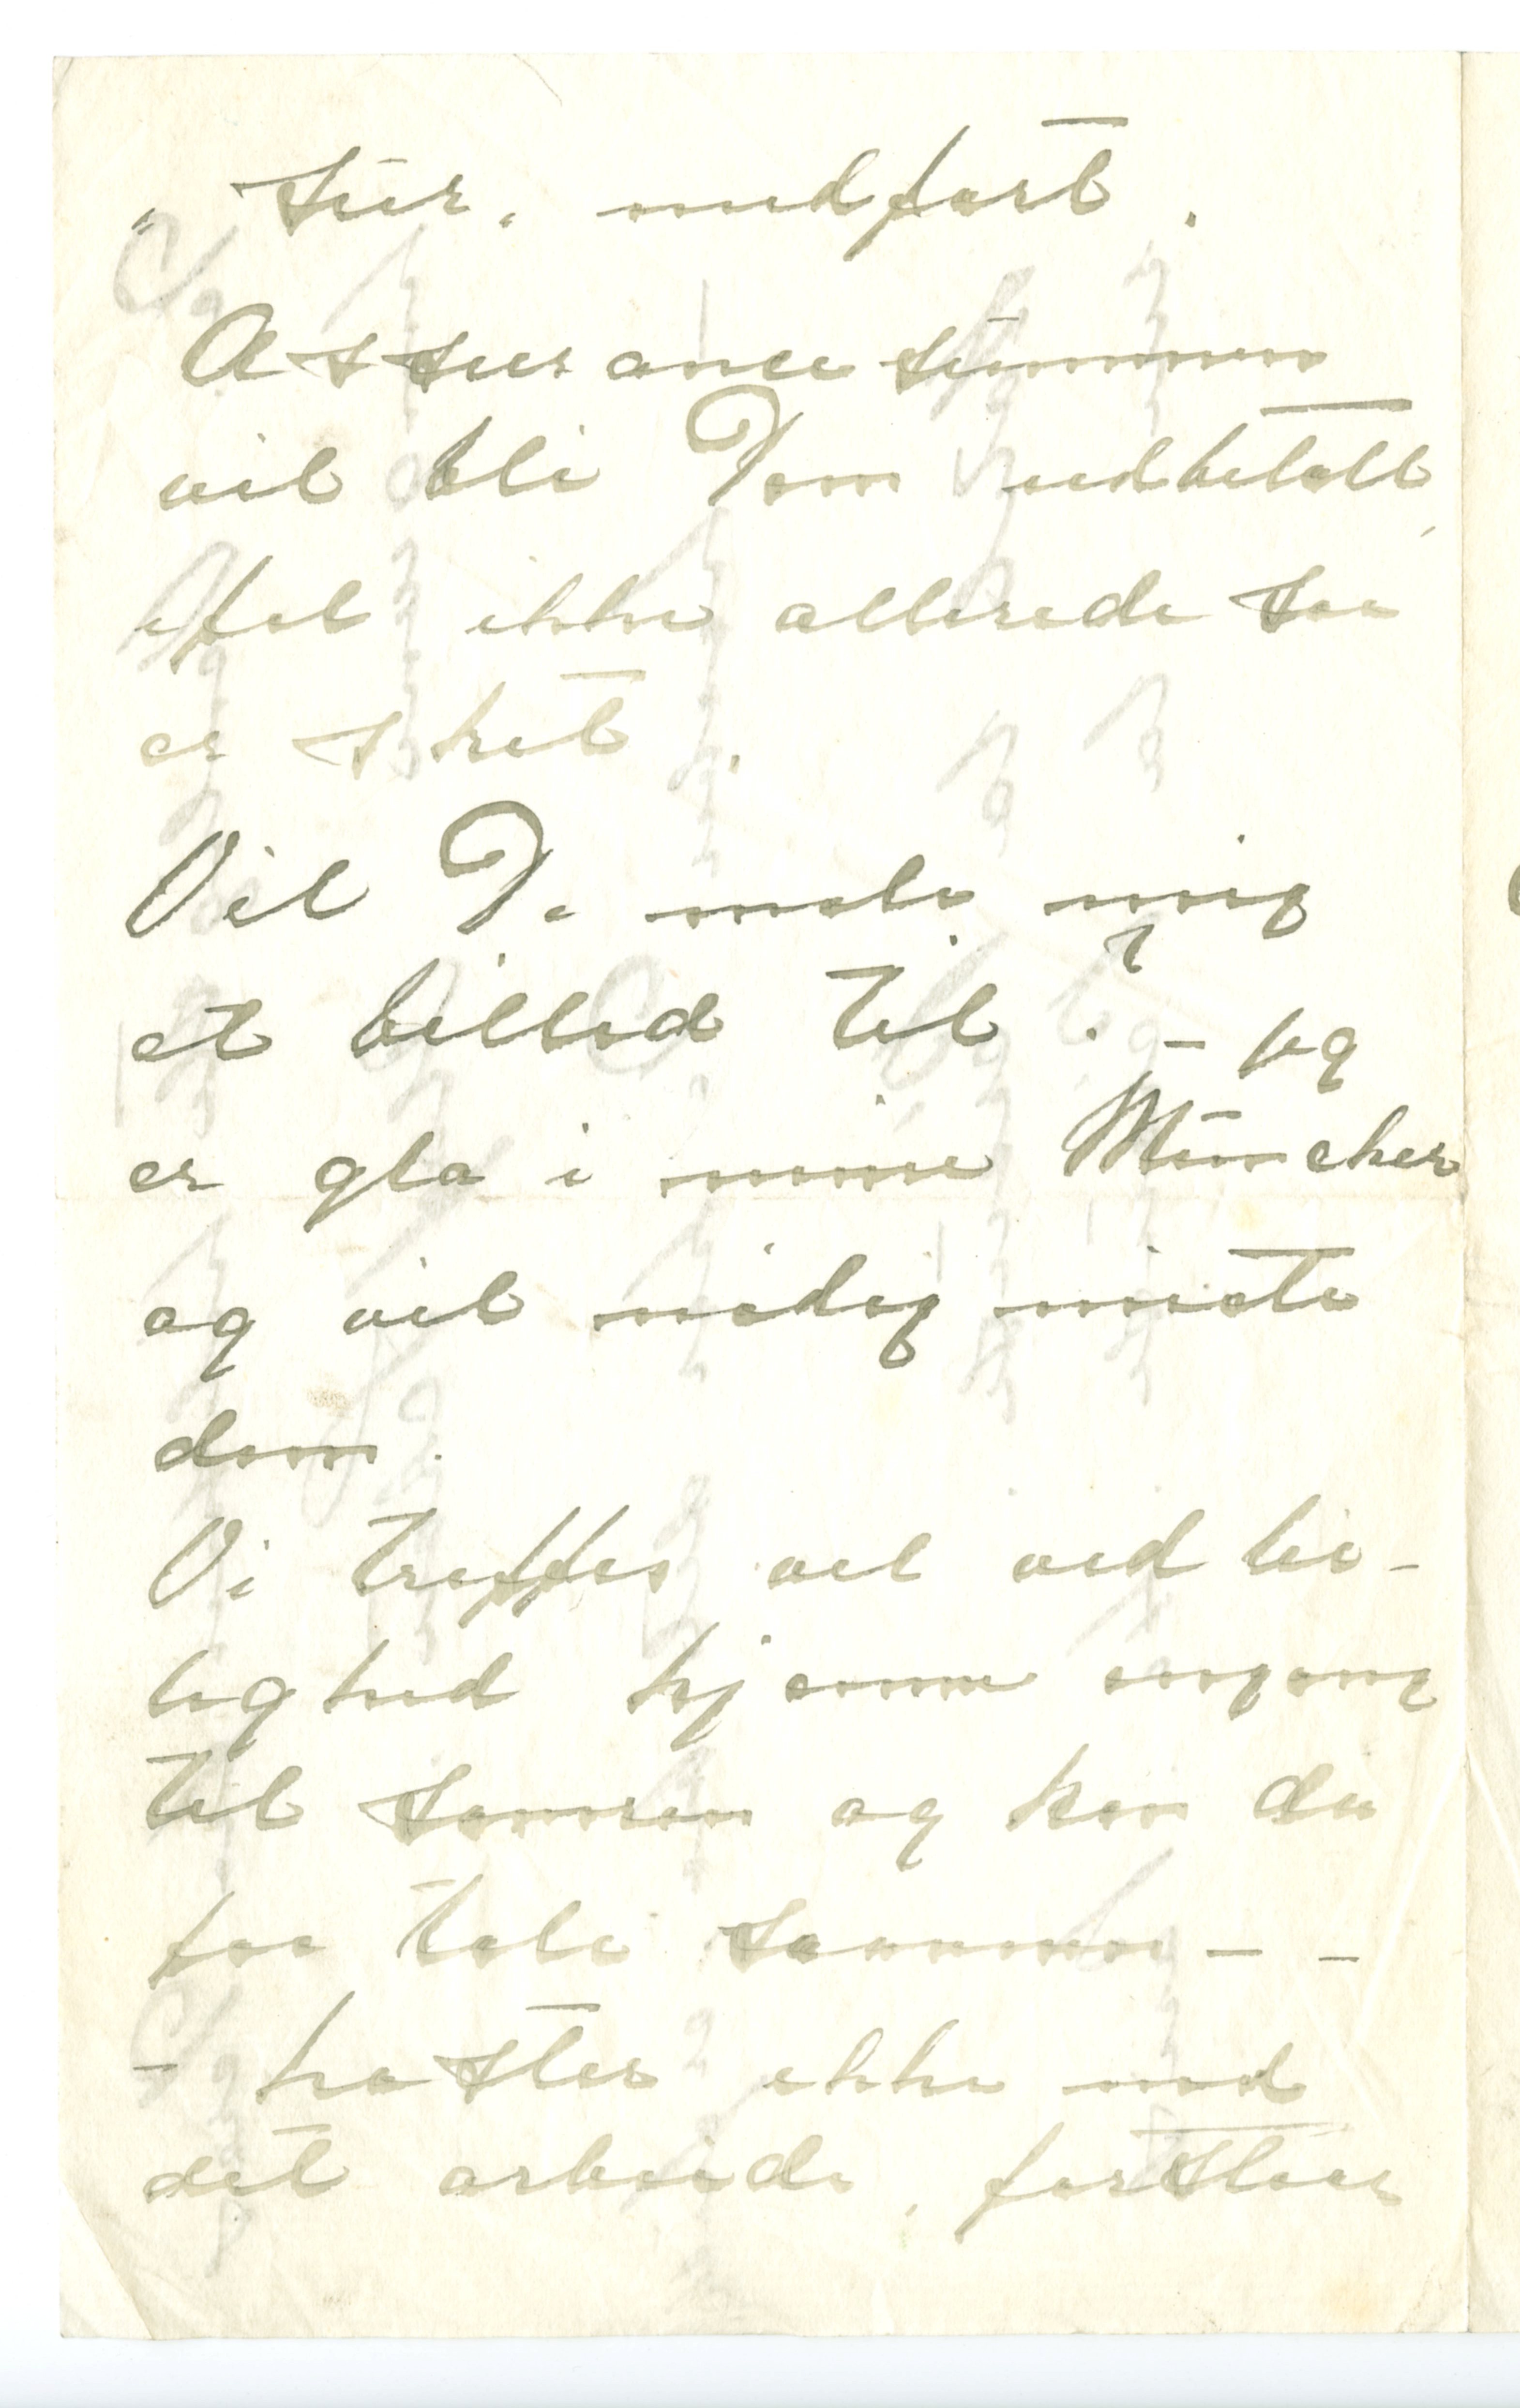 „ tur. medført.
Assurance summen
vil bli Dem udbetalt,
ifal ikke allerede saa
er sket.
Vil De male mig
et billed til? – jeg
er gla i mine Muncher
og vil nødig miste
dem.
Vi treffes vel ved lei-
lighed hjemme engang
til somren og kan da
faa tale sammen – –
– haster ikke med
det arbeide, forstaar